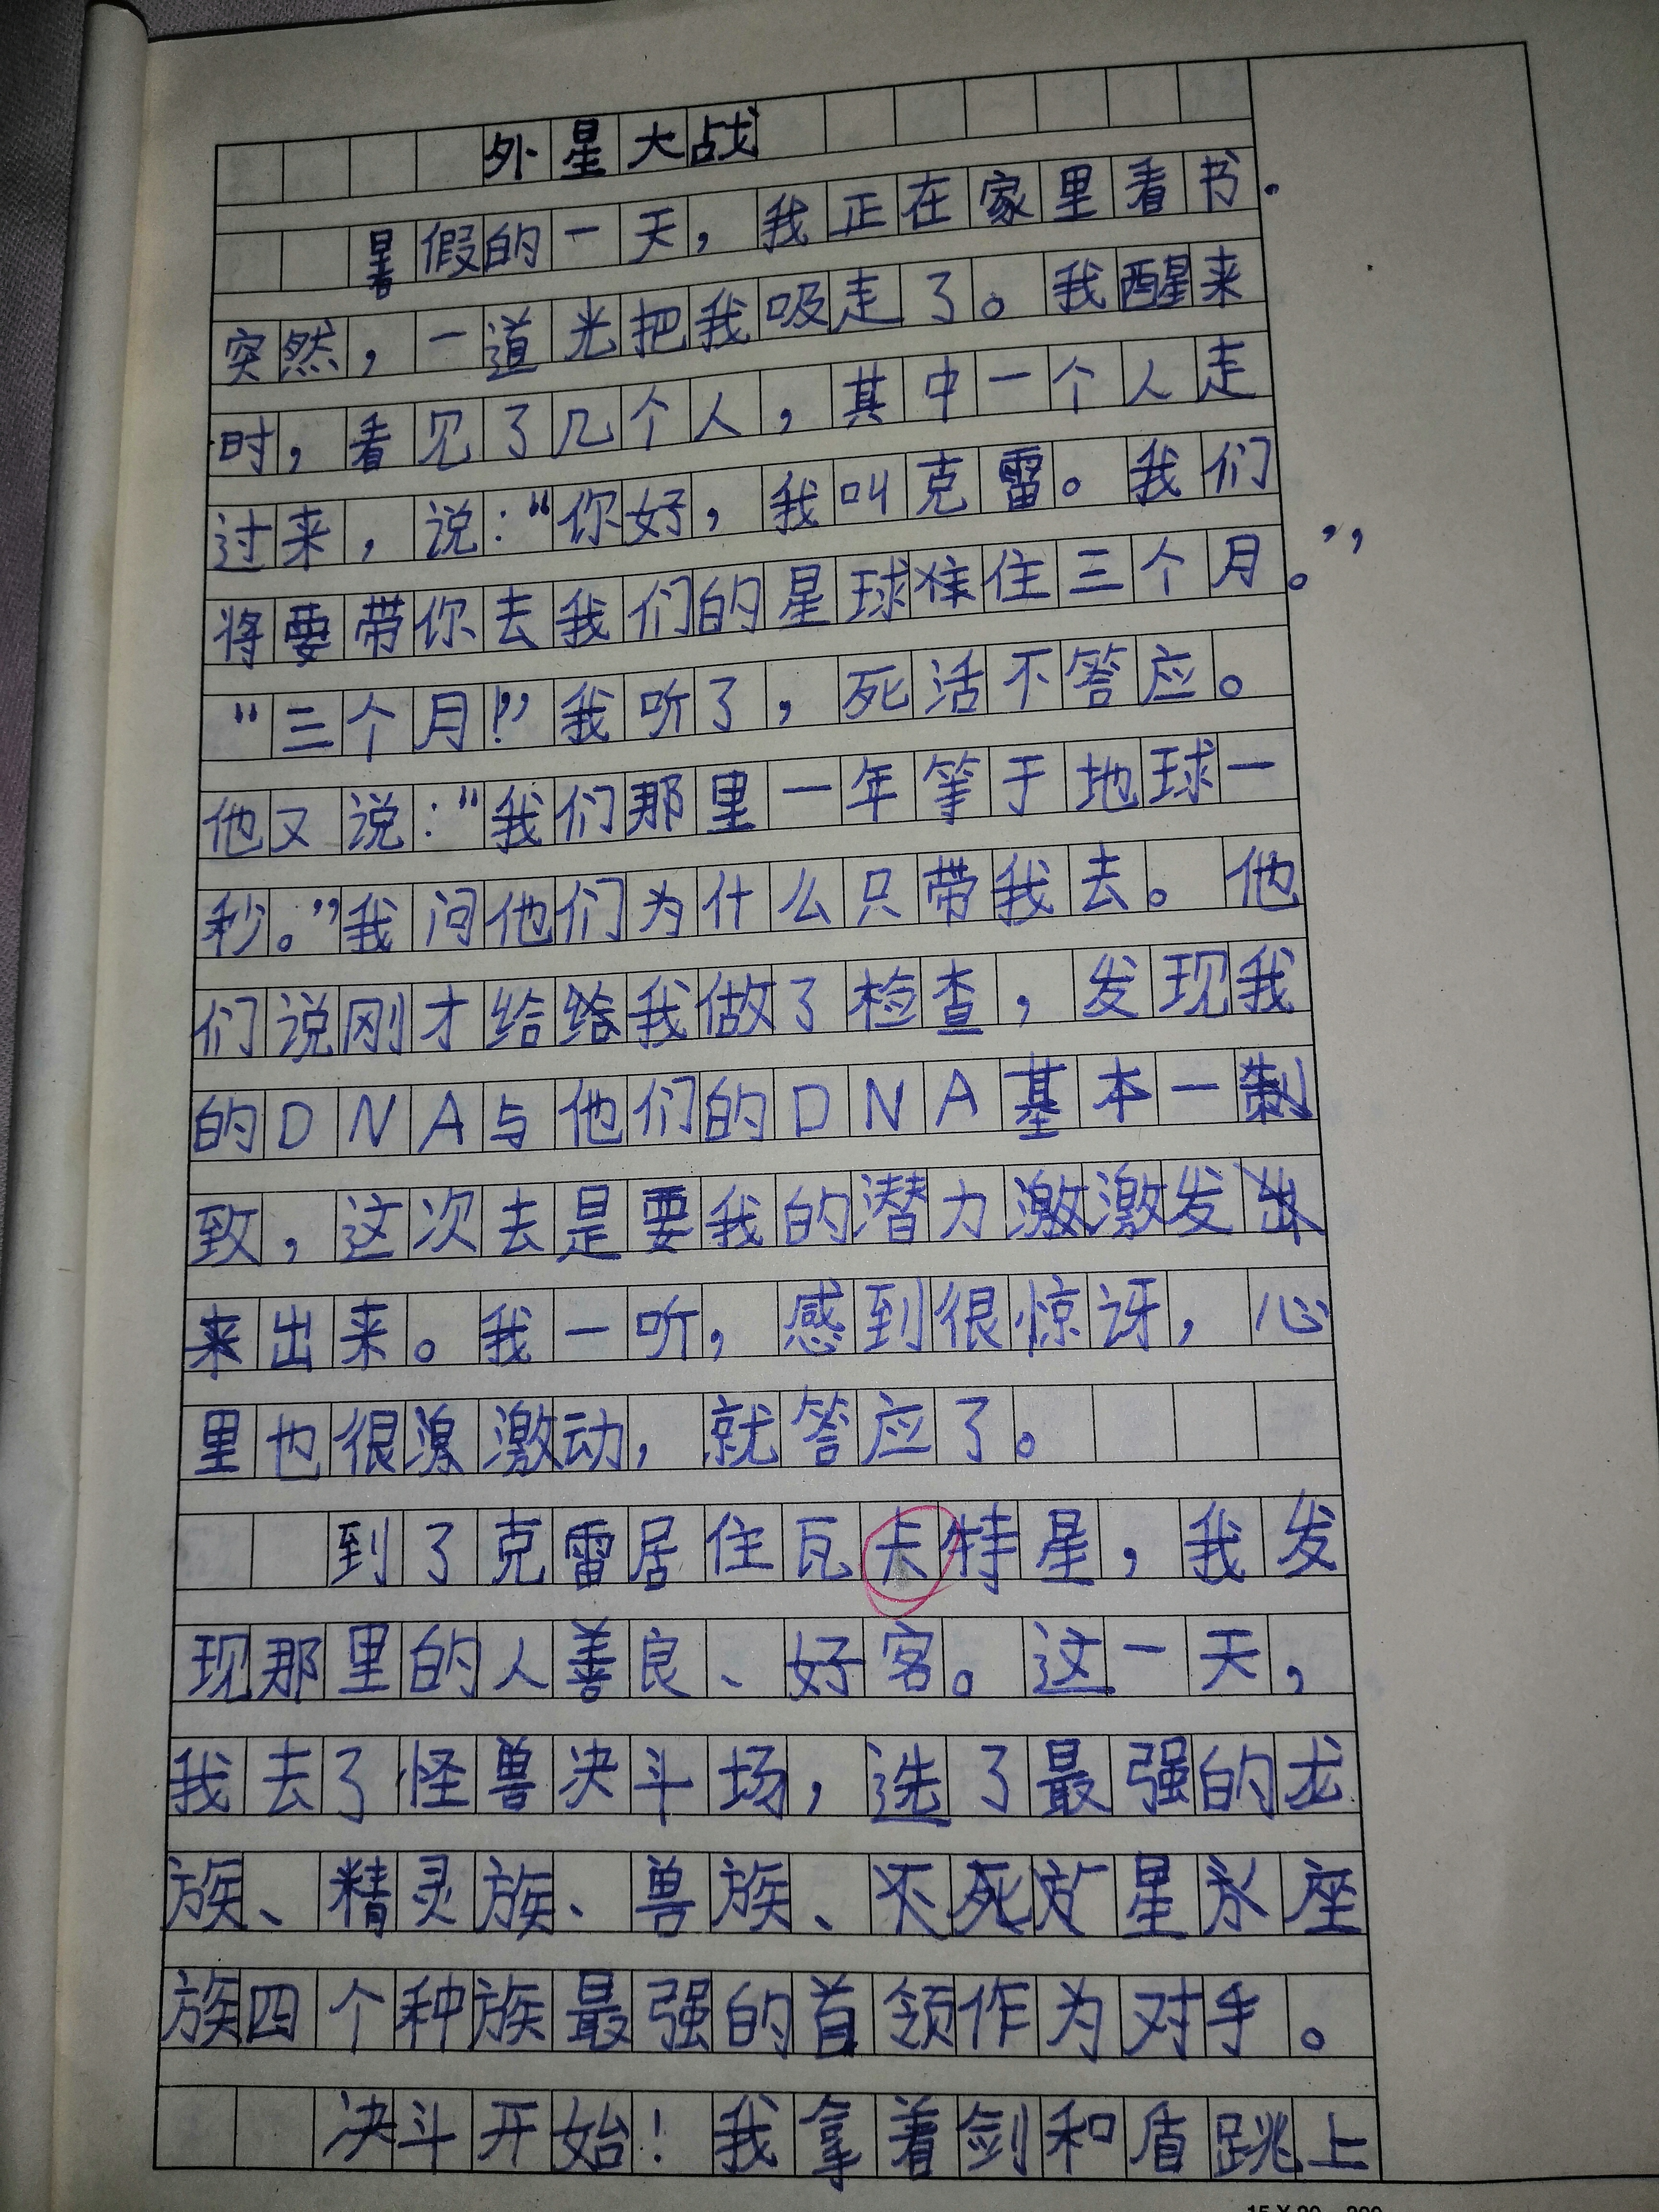 外星大战
暑假的一天，我正在家里看书.
突然，一道光把我吸走了。我醒来
时，看见了几个人，其中一个人走
过来，说：“你好，我叫克雷。我们
将要带你去我们的星球住三个月。”
“三个月！”我听了，死活不答应。
他又说：“我们那里一年等于地球一
秒。”我问他们为什么只带我去。他
们说刚才给我做了检查，发现我
的DNA与他们的DNA基本一
致，这次去是要我的潜力激发
出来。我一听，感到很惊讶，心
里也很激动，就答应了。
到了克雷居住瓦卡特星，我发
现那里的人善良、好客。这一天，
我去了怪兽决斗场，选了最强的龙
族、精灵族、兽族、星永座
族四个种族最强的首领作为对手。
决斗开始！我拿着剑和盾跳上